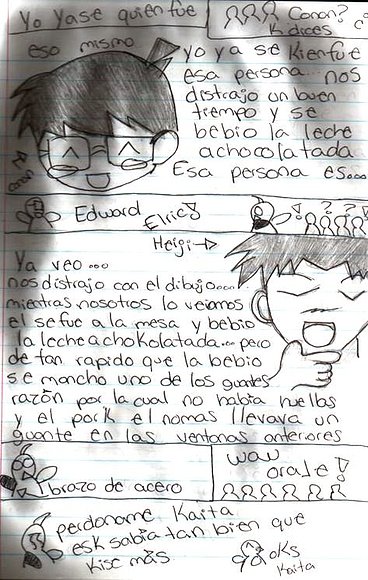 Yo Yase quien fue
Conan?
K dices
eso mismo
yo ya se kienfue
esa persona nos
distrajo un buen
tiempo y se
bebio la leche
achocolatada
Esa persona es....
conan
Edward
Elric!
! ? ? ?
Heiji→
Ya veo...
nos distrajo con el dibujo....
mientras nosotros lo veiamos
el se fue a la mesa y bebio
la leche achokolatada... pero
de tan rapido que la bebio
se mancho uno de los guantes
razón por la cual no habia huellas
y el por k el nomas llevaya un
guante en las ventanas anteriores
brazo de acero
waw
orale!
perdoname Kaita
esk sabia tan bien que
kise más
oks
Kaita